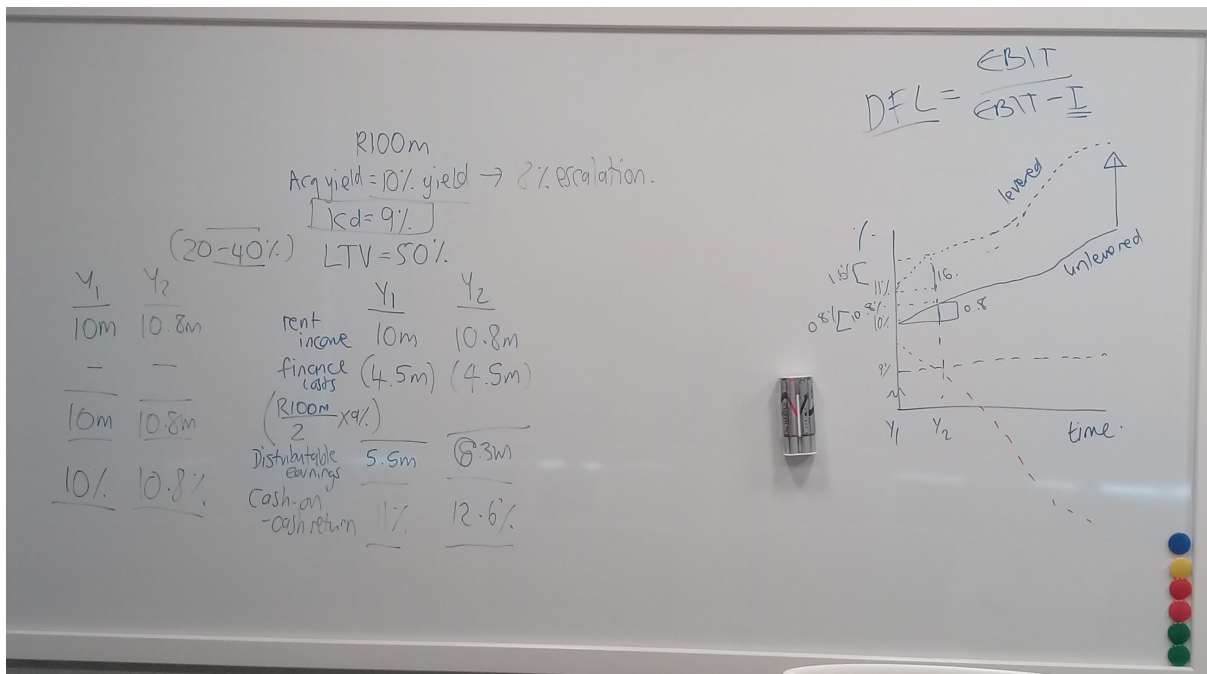 R100m
Acq yield = 10% yield → 8% escalation.
Kd = 9%
(20-40%) LTV = 50%
Y1 Y2
10m 10.8m
- -
10m 10.8m
10% 10.8%
Y1 Y2
rent income 10m 10.8m
finance costs (4.5m) (4.5m)
(R100m/2 x 9%)
Distributable earnings 5.5m 6.3m
Cash-on-cash return 11% 12.6%
DFL = EBIT / EBIT - I
levered
unlevered
%
11%
16.
10.8%
0.8
10%
9%
Y1 Y2 time.